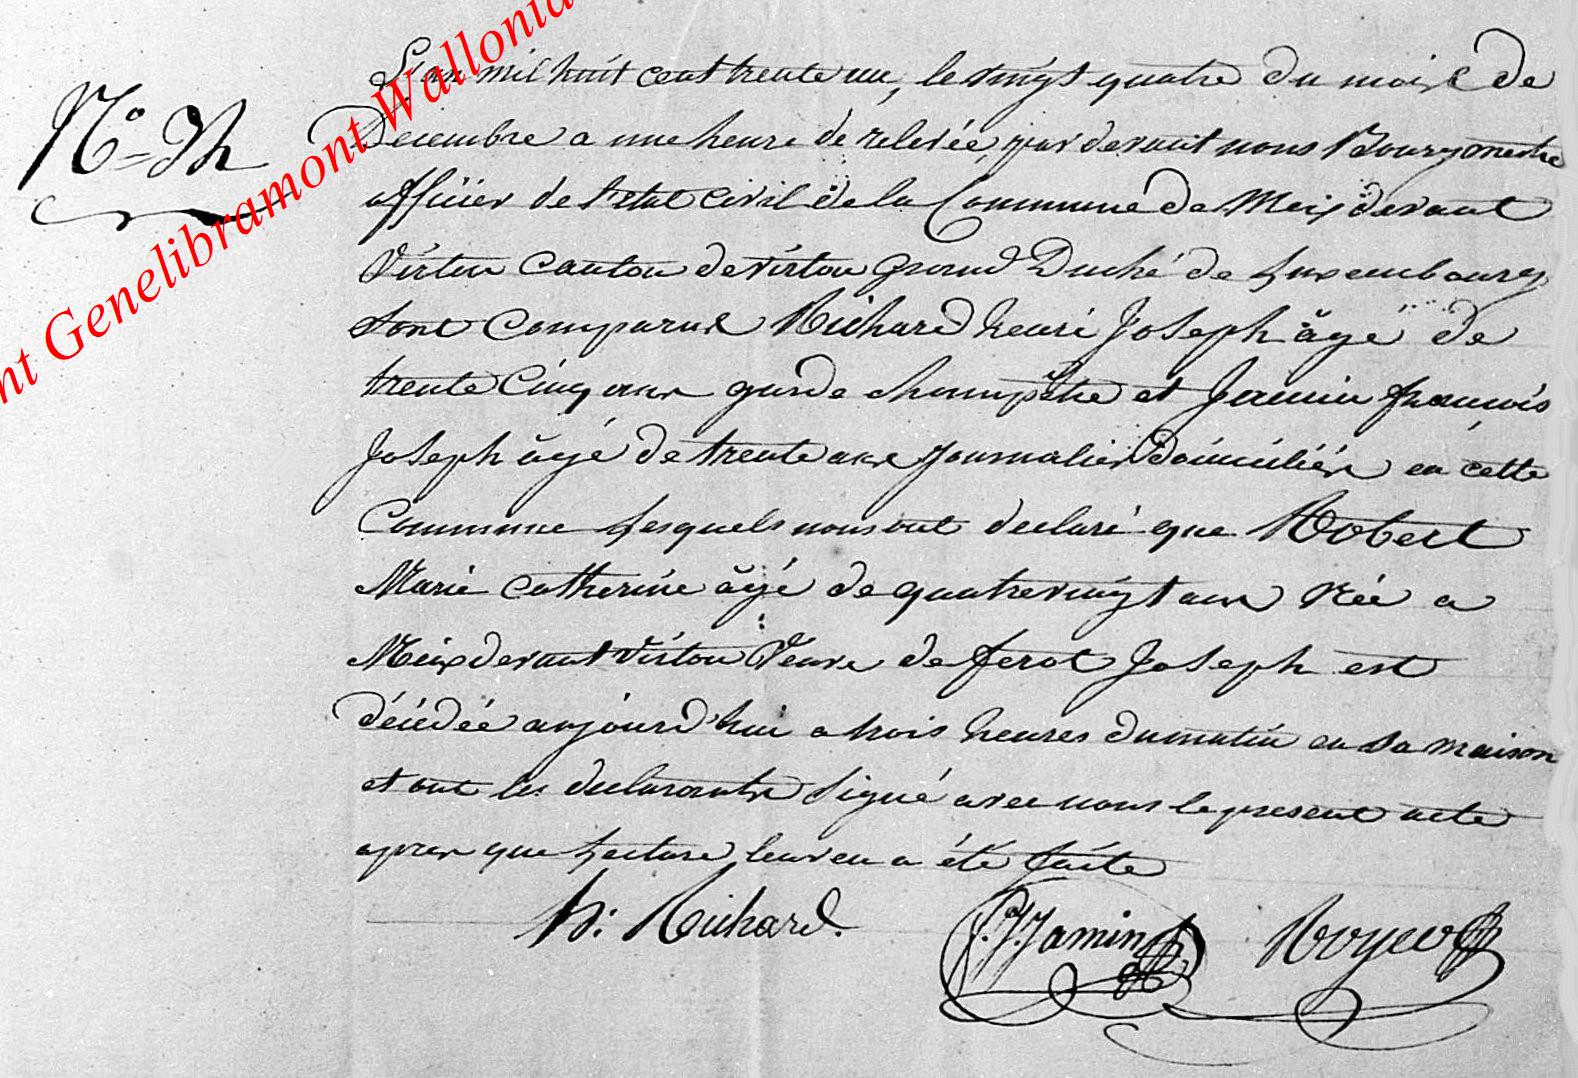 L'an mil huit cent trente un, le vingt quatre du mois de
Decembre a une heure de relevée, par devant nous Bourgmestre
officier de l'etat civil de la Commune de Meix devant
Virton Canton de virton grand Duché de Luxembourg
sont Comparus Richard henri Joseph âgé de
trente Cinq ans garde champêtre et Jamin françois
Joseph âgé de trente ans journalier domiciliés en cette
Commune Lesquels nous ont declaré que Robert
Marie Catherine âgé de quatre vingt ans Née a
Meix devant Virton Veuve de ferot Joseph est
décédée aujourd'hui a trois heures du matin en sa maison
et ont les declarants signé avec nous le present acte
apres que Lecture leur en a été faite
h: Richard. f. J. Jamin
N°
nt Genelibramont Wallonia